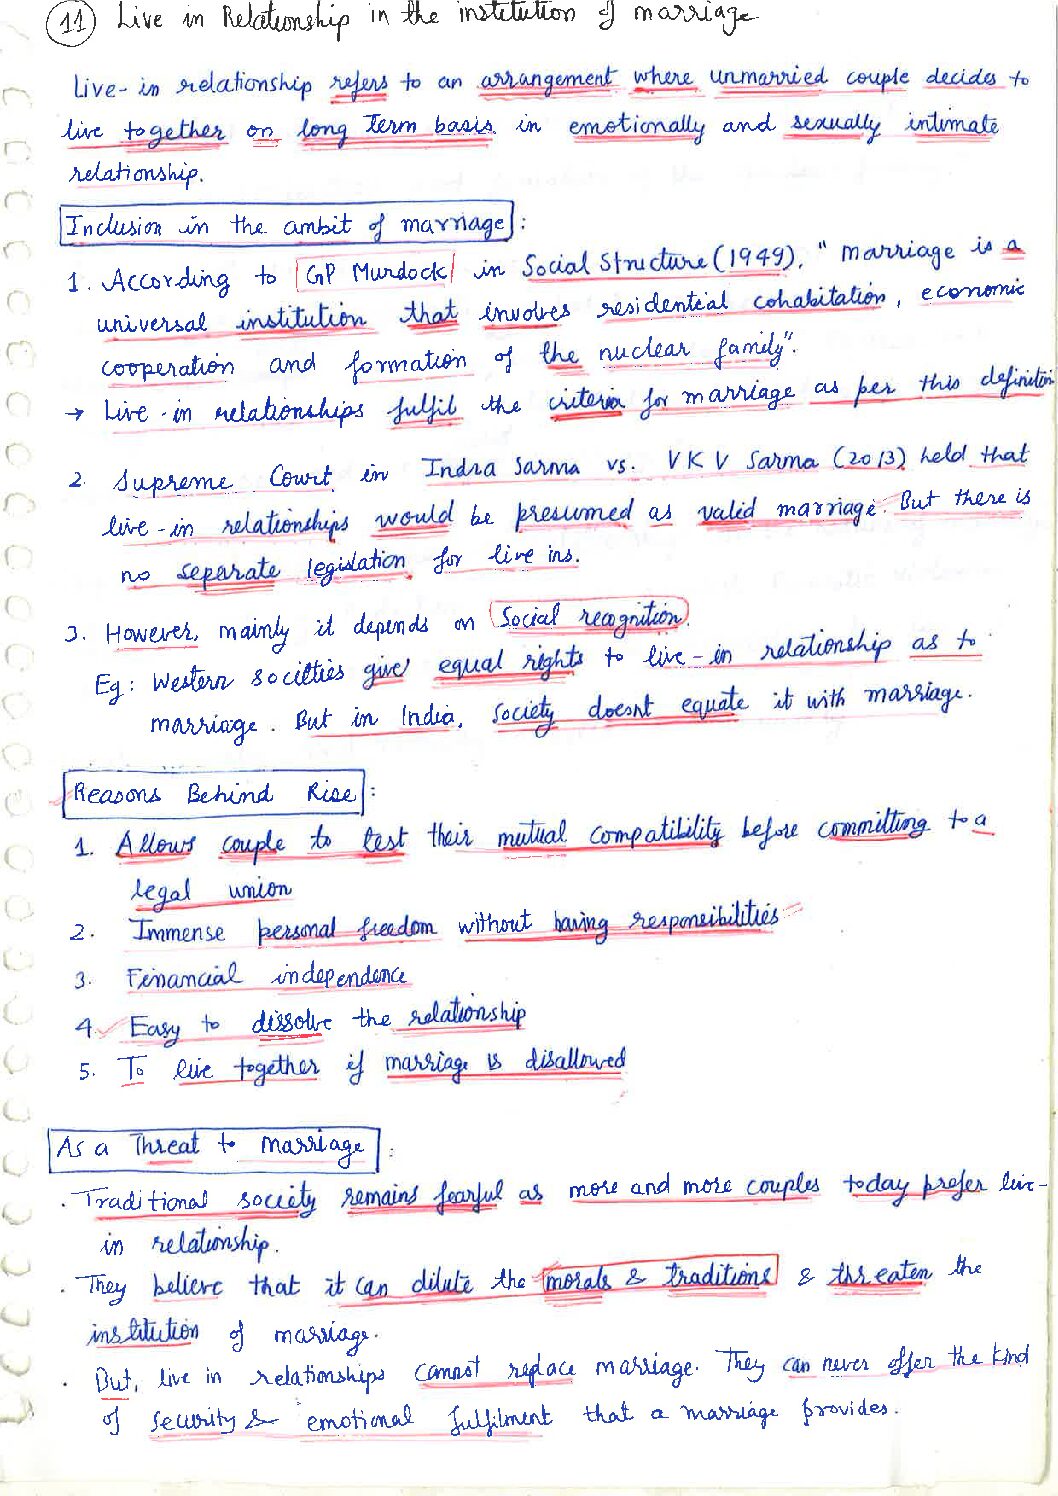 11 Live in Relationship in the institution of marriage
Live-in relationship refers to an arrangement where unmarried couple decides to
live together on long term basis in emotionally and sexually intimate
relationship.
Inclusion in the ambit of marriage :
1. According to GP Murdock in Social Structure (1949), " marriage is a
universal institution that involves residential cohabitation, economic
cooperation and formation of the nuclear family".
→ Live-in relationships fulfil the criteria for marriage as per this definition
2. Supreme Court in Indra Sarma vs. VKV Sarma (2013) held that
live-in relationships would be presumed as valid marriage. But there is
no separate legislation for live ins.
3. However, mainly it depends on Social recognition.
Eg: Western societies give equal rights to live-in relationship as to
marriage. But in India, society doesnt equate it with marriage.
Reasons Behind Rise :
1. Allows couple to test their mutual compatibility before committing to a
legal union
2. Immense personal freedom without having responsibilities
3. Financial independence
4. Easy to dissolve the relationship
5. To live together if marriage is disallowed
As a Threat to marriage :
. Traditional society remains fearful as more and more couples today prefer live-
in relationship.
. They believe that it can dilute the morals & traditions & threaten the
institution of marriage.
. But, live in relationships cannot replace marriage. They can never offer the kind
of security & emotional fulfilment that a marriage provides.